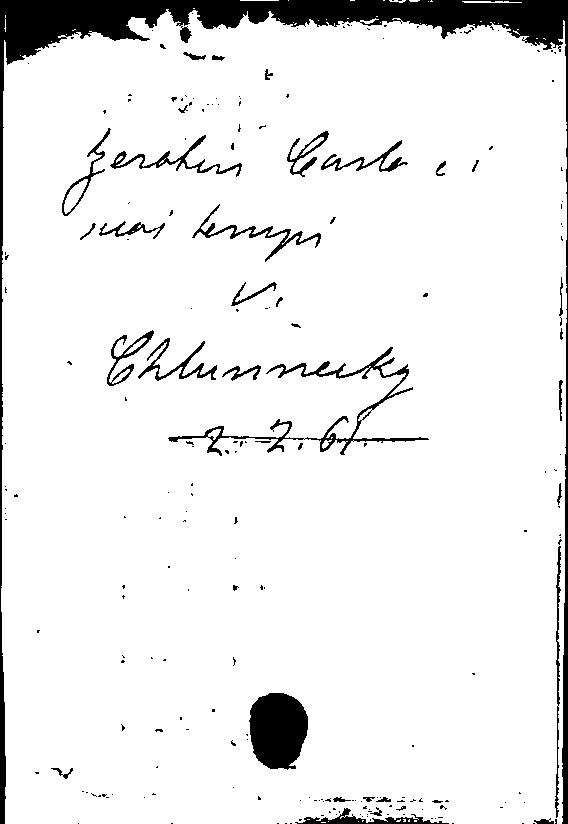 Zerotin Carlo e i
suoi tempi
V.
Chlumecky
2. Z. 61.